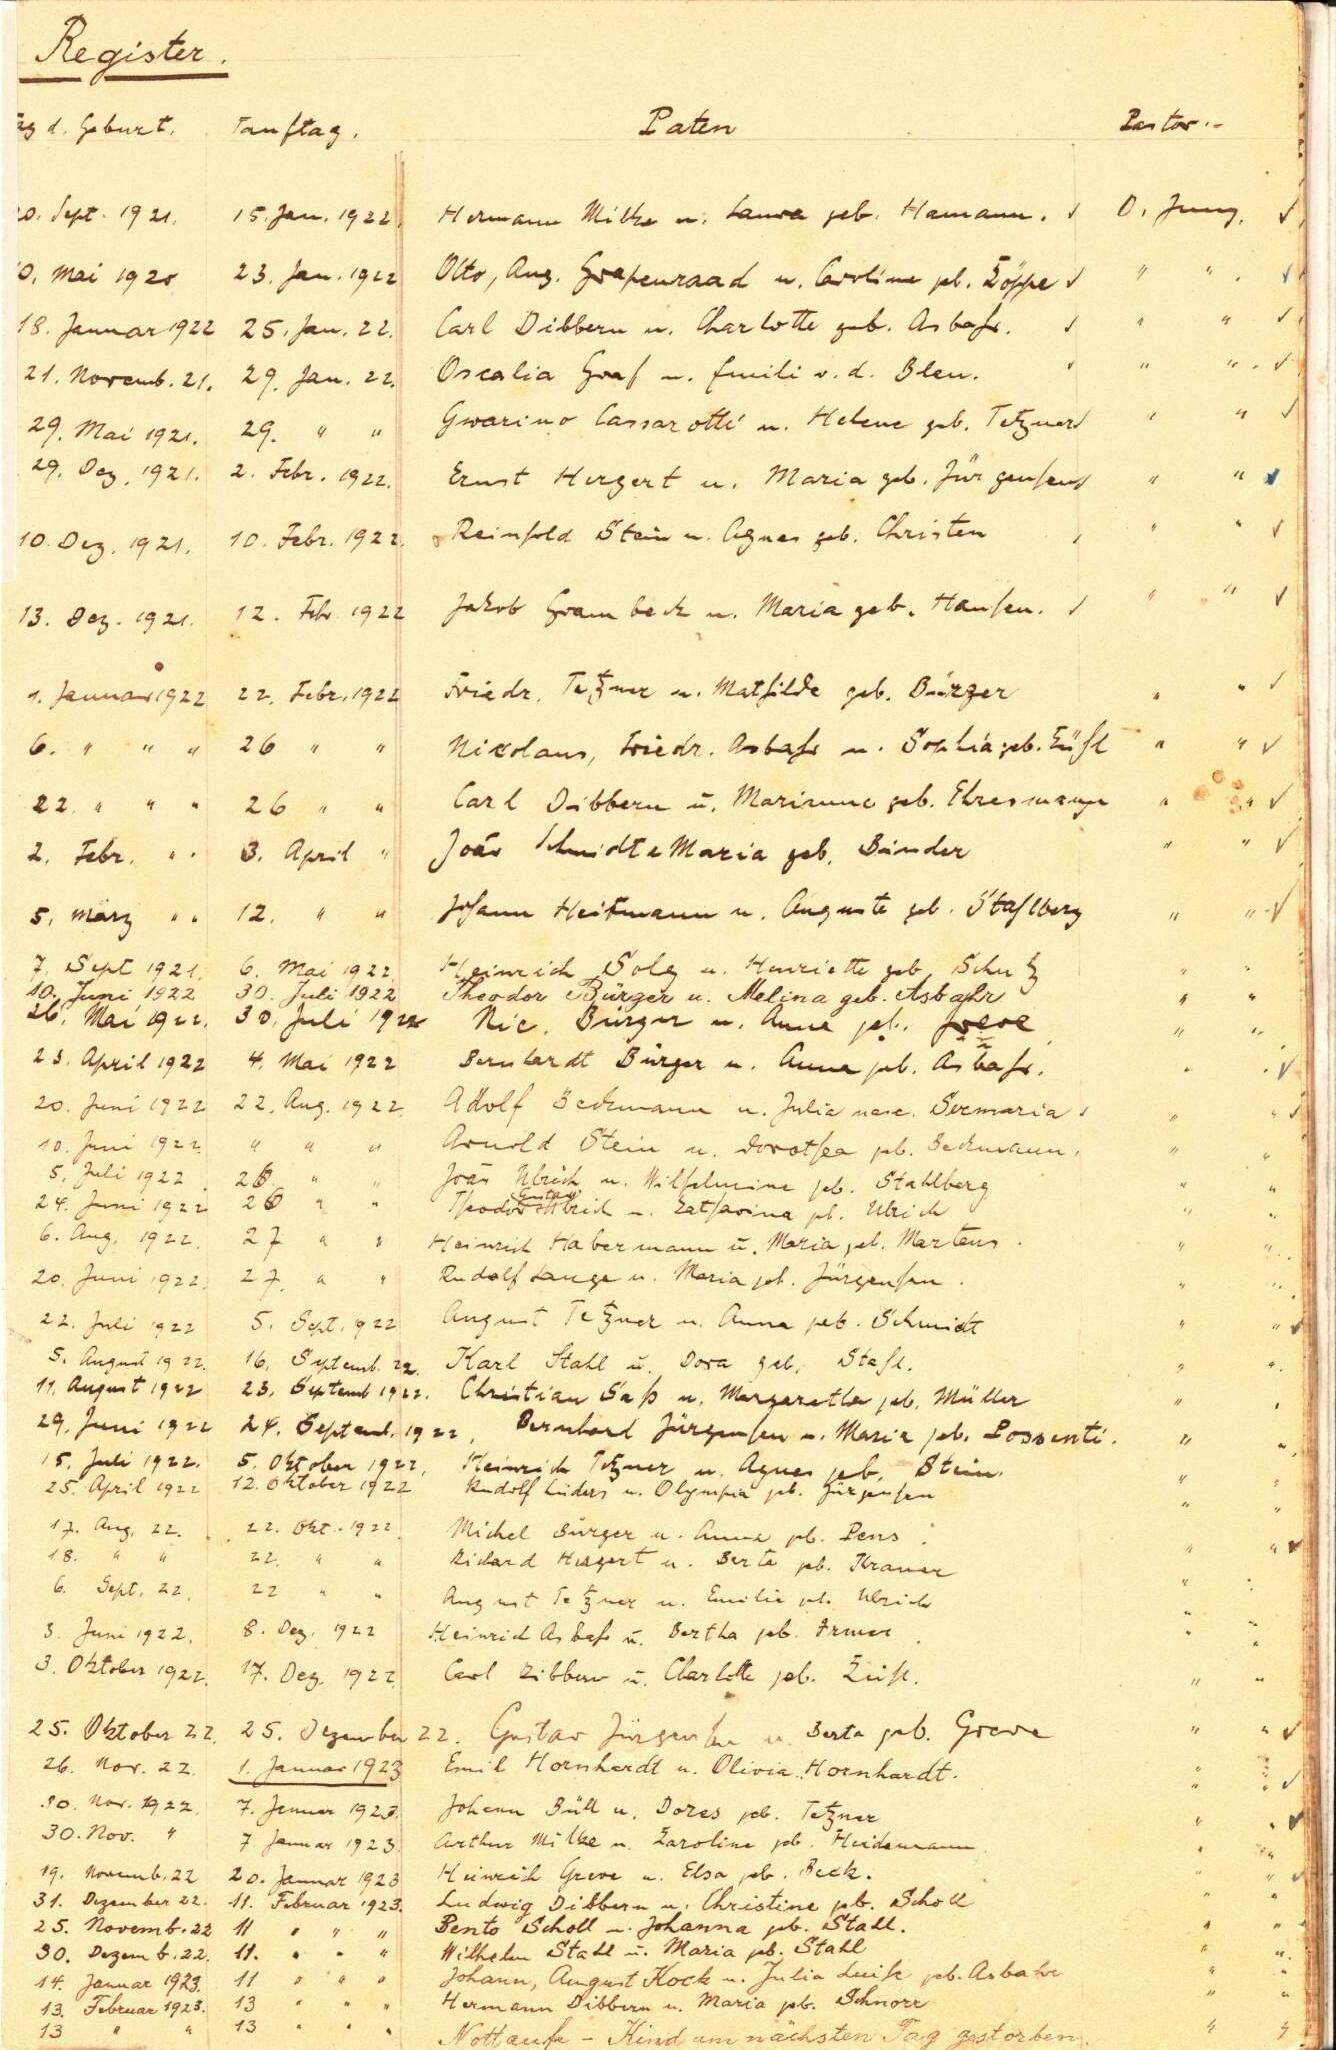 Register.
Tag d. Geburt. Tauftag. Paten Pastor:-
20. Sept. 1921. 15. Jan. 1922. Hermann Milke u. Laura geb. Hamann. O. Jung.
0. Mai 1920 23. Jan. 1922 Otto, Aug. Grapenraad u. Caroline geb. Köppe " "
18. Januar 1922 25. Jan. 22. Carl Dibbern u. Charlotte geb. Asbahr. " "
21. Novemb. 21. 29. Jan. 22. Oscalia Graf u. Emili v. d. Blen. " "
29. Mai 1921. 29. " " Gwarino Cassarotti u. Helene geb. Tetzner " "
29. Dez. 1921. 2. Febr. 1922. Ernst Hergert u. Maria geb. Jürgensen " "
10. Dez. 1921. 10. Febr. 1922. Reinhold Stein u. Agnes geb. Christen " "
13. Dez. 1921. 12. Febr 1922 Jakob Grambeck u. Maria geb. Hansen. " "
1. Januar 1922 22. Febr. 1922 Friedr. Tetzner u. Mathilde geb. Bürger " "
6. " " " 26 " " Nikolaus, Friedr. Asbahr u. Sophia geb. Kühl " "
22. " " " 26 " " Carl Dibbern ū. Marianne geb. Ehresmann " "
2. Febr. " " 3. April " João Schmidt e Maria geb. Binder " "
5. März " " 12. " " Johann Heitmann u. Auguste geb. Stahlberg " "
7. Sept 1921. 6. Mai 1922. Heinrich Solg u. Henriette geb. Schutz " "
10. Juni 1922 30. Juli 1922 Theodor Bürger u. Melina geb. Asbahr " "
26. Mai 1922. 30. Juli 1922 Nic. Bürger u. Anna geb. Greve " "
23. April 1922 4. Mai 1922 Bernhardt Bürger u. Anna geb. Asbahr. " "
20. Juni 1922 22. Aug. 1922. Adolf Beckmann u. Julia nasc. Sermaria " "
10. Juni 1922. " " " Arnold Stein u. Dorothea geb. Beckmann. " "
5. Juli 1922 26. " " João Ulrich u. Wilhelmine geb. Stahlberg " "
Gustav
24. Juni 1922 26 " " Theodor Ulrich u. Katharina geb. Ulrich " "
6. Aug. 1922. 27 " " Heinrich Habermann ū. Maria geb. Martens. " "
20. Juni 1922. 27. " " Rudolf Lange u. Maria geb. Jürgensen. " "
22. Juli 1922 5. Sept. 1922 August Tetzner u. Anna geb. Schmidt " "
5. August 1922. 16. Septemb. 22. Karl Stahl ū. Dora geb. Stahl. " "
11. August 1922 23. Septemb 1922. Christian Saß u. Margaretha geb. Müller " "
29. Juni 1922 24. Septemb. 1922, Bernhard Jürgensen u. Maria geb. Possenti. " "
15. Juli 1922. 5. Oktober 1922, Heinrich Tetzner u. Agnes geb. Stein. " "
25. April 1922 12. Oktober 1922 Rudolf Lüders u. Olympia geb. Jürgensen " "
17. Aug. 22. 22. Okt. 1922. Michel Bürger u. Anna geb. Pens. " "
18. " " 22. " " Richard Hergert u. Berta geb. Kramer " "
6. Sept. 22. 22 " " August Tetzner u. Emilie geb. Ulrich " "
3. Juni 1922. 8. Dez. 1922 Heinrich Asbahr ū. Bertha geb. Irmer. " "
3. Oktober 1922. 17. Dez. 1922 Carl Dibbern ū. Charlotte geb. " "
25. Oktober 22. 25. Dezember 22. Gustav Jürgensen u. Berta geb. Greve " "
26. Nov. 22. 1. Januar 1923 Emil Hornhardt u. Olivia Hornhardt. " "
30. Nov. 1922. 7. Januar 1923. Johann Büll u. Dores geb. Tetzner " "
30. Nov. " 7 Januar 1923. Arthur Milke u. Karoline geb. Heidemann " "
19. Novemb. 22 20. Januar 1923 Heinrich Greve u. Elsa geb. Beck. " "
31. Dezember 22. 11. Februar 1923. Ludwig Dibbern u. Christine geb. Scholl " "
25. Novemb. 22 11 " " " Bento Scholl u. Johanna geb. Stahl. " "
30. Dezemb. 22. 11. " " " Wilhelm Stahl ū. Maria geb. Stahl " "
14. Januar 1923. 11 " " " Johann, August Kock u. Julia Luise geb. Asbahr " "
13. Februar 1923. 13 " " " Hermann Dibbern u. Maria geb. Schnorr " "
13 " " 13 " " " Nottaufe - Kind am nächsten Tag gestorben. " "